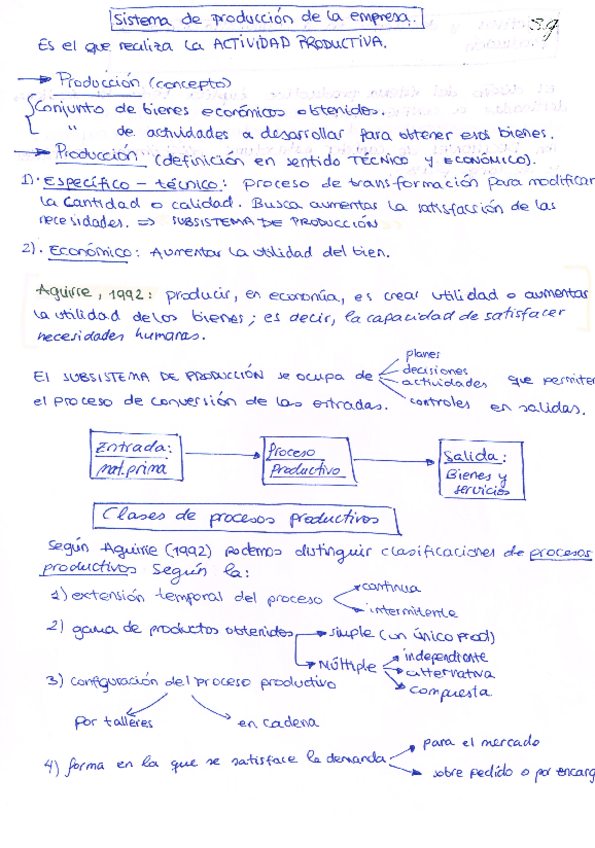 Sistema de producción de la empresa.
Es el que realiza la ACTIVIDAD PRODUCTIVA.
→ Producción (concepto)
Conjunto de bienes económicos obtenidos.
" de actividades a desarrollar para obtener esos bienes.
→ Producción (definición en sentido TÉCNICO y ECONÓMICO).
1). Específico - técnico: proceso de transformación para modificar
la cantidad o calidad. Busca aumentar la satisfacción de las
necesidades. => SUBSISTEMA DE PRODUCCIÓN
2). Económico: Aumentar la utilidad del bien.
Aguirre, 1992: producir, en economía, es crear utilidad o aumentar
la utilidad de los bienes; es decir, la capacidad de satisfacer
necesidades humanas.
El SUBSISTEMA DE PRODUCCIÓN se ocupa de planes
decisiones
actividades que permiten
controles
el proceso de conversión de las entradas. en salidas.
Entrada: mat. prima → Proceso Productivo → Salida: Bienes y servicios
Clases de procesos productivos
Según Aguirre (1992) podemos distinguir clasificaciones de procesos
productivos según la:
1) extensión temporal del proceso
continua
intermitente
2) gama de productos obtenidos → simple (un único prod)
→ Múltiple
independiente
alternativa
compuesta
3) configuración del proceso productivo
por talleres
en cadena
4) forma en la que se satisface la demanda
para el mercado
sobre pedido o por encarg